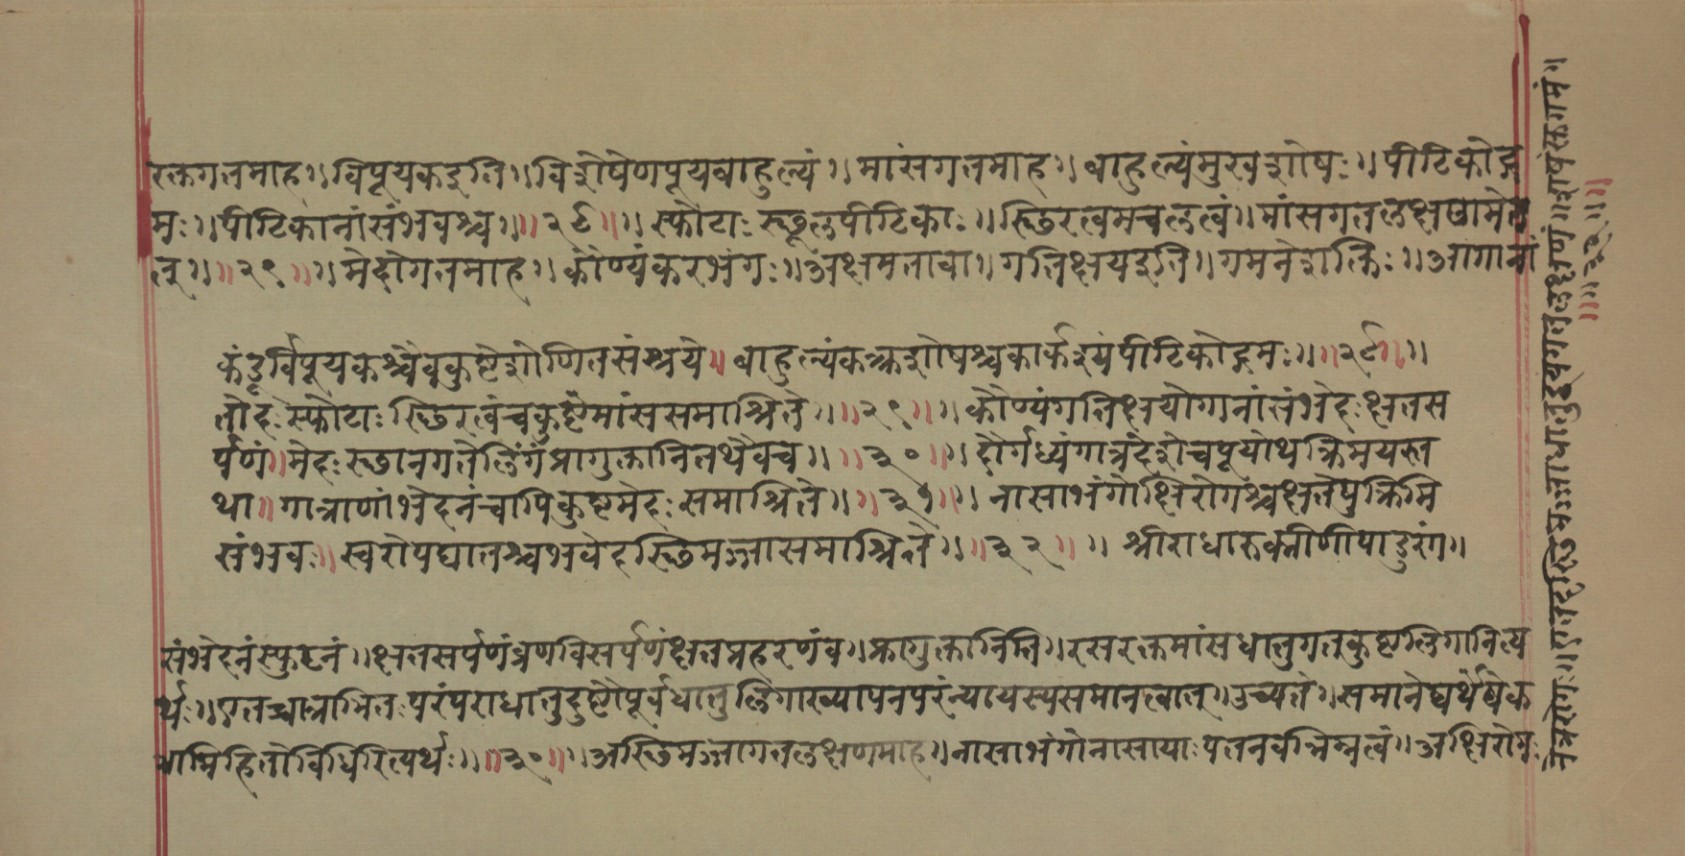 रक्तगतमाह॥विपूयकइति॥विशेषेणपूयबाहुल्यं॥मांसगतमाह॥बाहुल्यंमुखशोषः॥पीटिकोद्ग
मः॥पीटिकानांसंभवश्च॥॥२८॥॥स्फोटाःस्छूलपीटिकाः॥स्छिरत्वमचलत्वं॥मांसगतलक्षणमेत
त्॥॥२९॥॥मेदोगतमाह॥कौण्यंकरभंगः॥अंक्षमतावा॥गतिक्षयइति॥गमनेशक्तिः॥अंगानां
कंडूर्विपूयकश्चैवकुष्टेशोणितसंश्रये॥बाहुल्यंवक्त्रशोषश्चकार्कश्यंपीटिकोद्गमः॥॥२८॥॥
तोदःस्फोटाःस्छिरत्वंचकुष्टेमांससमाश्रिते॥॥२९॥॥कौण्यंगतिक्षयोगानांसंभेदःक्षतस
र्पणं॥मेदःस्छानगतेलिंगंप्रागुक्तानितथैवच॥॥३०॥॥दौर्गंध्यंगात्रदेशेचपूयोथक्रिमयस्त
था॥गात्राणांभेदनंचापिकुष्टमेदःसमाश्रिते॥॥३१॥॥नासाभंगोक्षिरोगश्चक्षतेपुक्रिमि
संभवः॥स्वरोपघातश्चभवेदस्छिमज्जासमाश्रिते॥॥३२॥॥श्रीराधारुक्मीणीपांडुरंग॥
संभेदनंस्फुटनं॥क्षतसर्पणंव्रणविसर्पणंक्षतप्रहरणंव॥प्रागुक्तानिति॥रसरक्तमांसधातुगतकुष्टलिंगानित्य
र्थः॥एतच्चान्नाभितःपरंपराधातुदुष्टौपूर्वधातुलिंगाख्यापनपरंन्यायस्यसमानत्वात्॥उच्यते॥समानेष्वर्थेष्वेक
त्राभिहितोविधिरित्यर्थः॥॥३०॥॥अस्छिमज्जागतलक्षणमाह॥नासाभंगोनासायाःपतनवन्निम्नत्वं॥अक्षिरोगः
नेत्ररोगः॥एतदस्छिमज्जाधातुद्वयगतलक्षणं॥शेषंरक्तगमं॥
॥॥३२॥॥